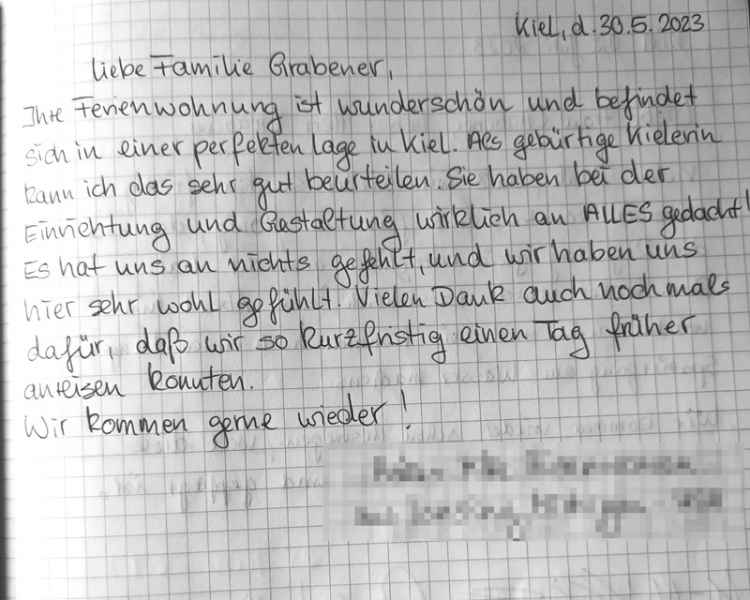 Kiel, d. 30.5.2023
Liebe Familie Grabener,
Ihre Ferienwohnung ist wunderschön und befindet
sich in einer perfekten Lage in Kiel. Als gebürtige Kielerin
kann ich das sehr gut beurteilen. Sie haben bei der
Einrichtung und Gestaltung wirklich an ALLES gedacht!
Es hat uns an nichts gefehlt, und wir haben uns
hier sehr wohl gefühlt. Vielen Dank auch nochmals
dafür, daß wir so kurzfristig einen Tag früher
anreisen konnten.
Wir kommen gerne wieder!